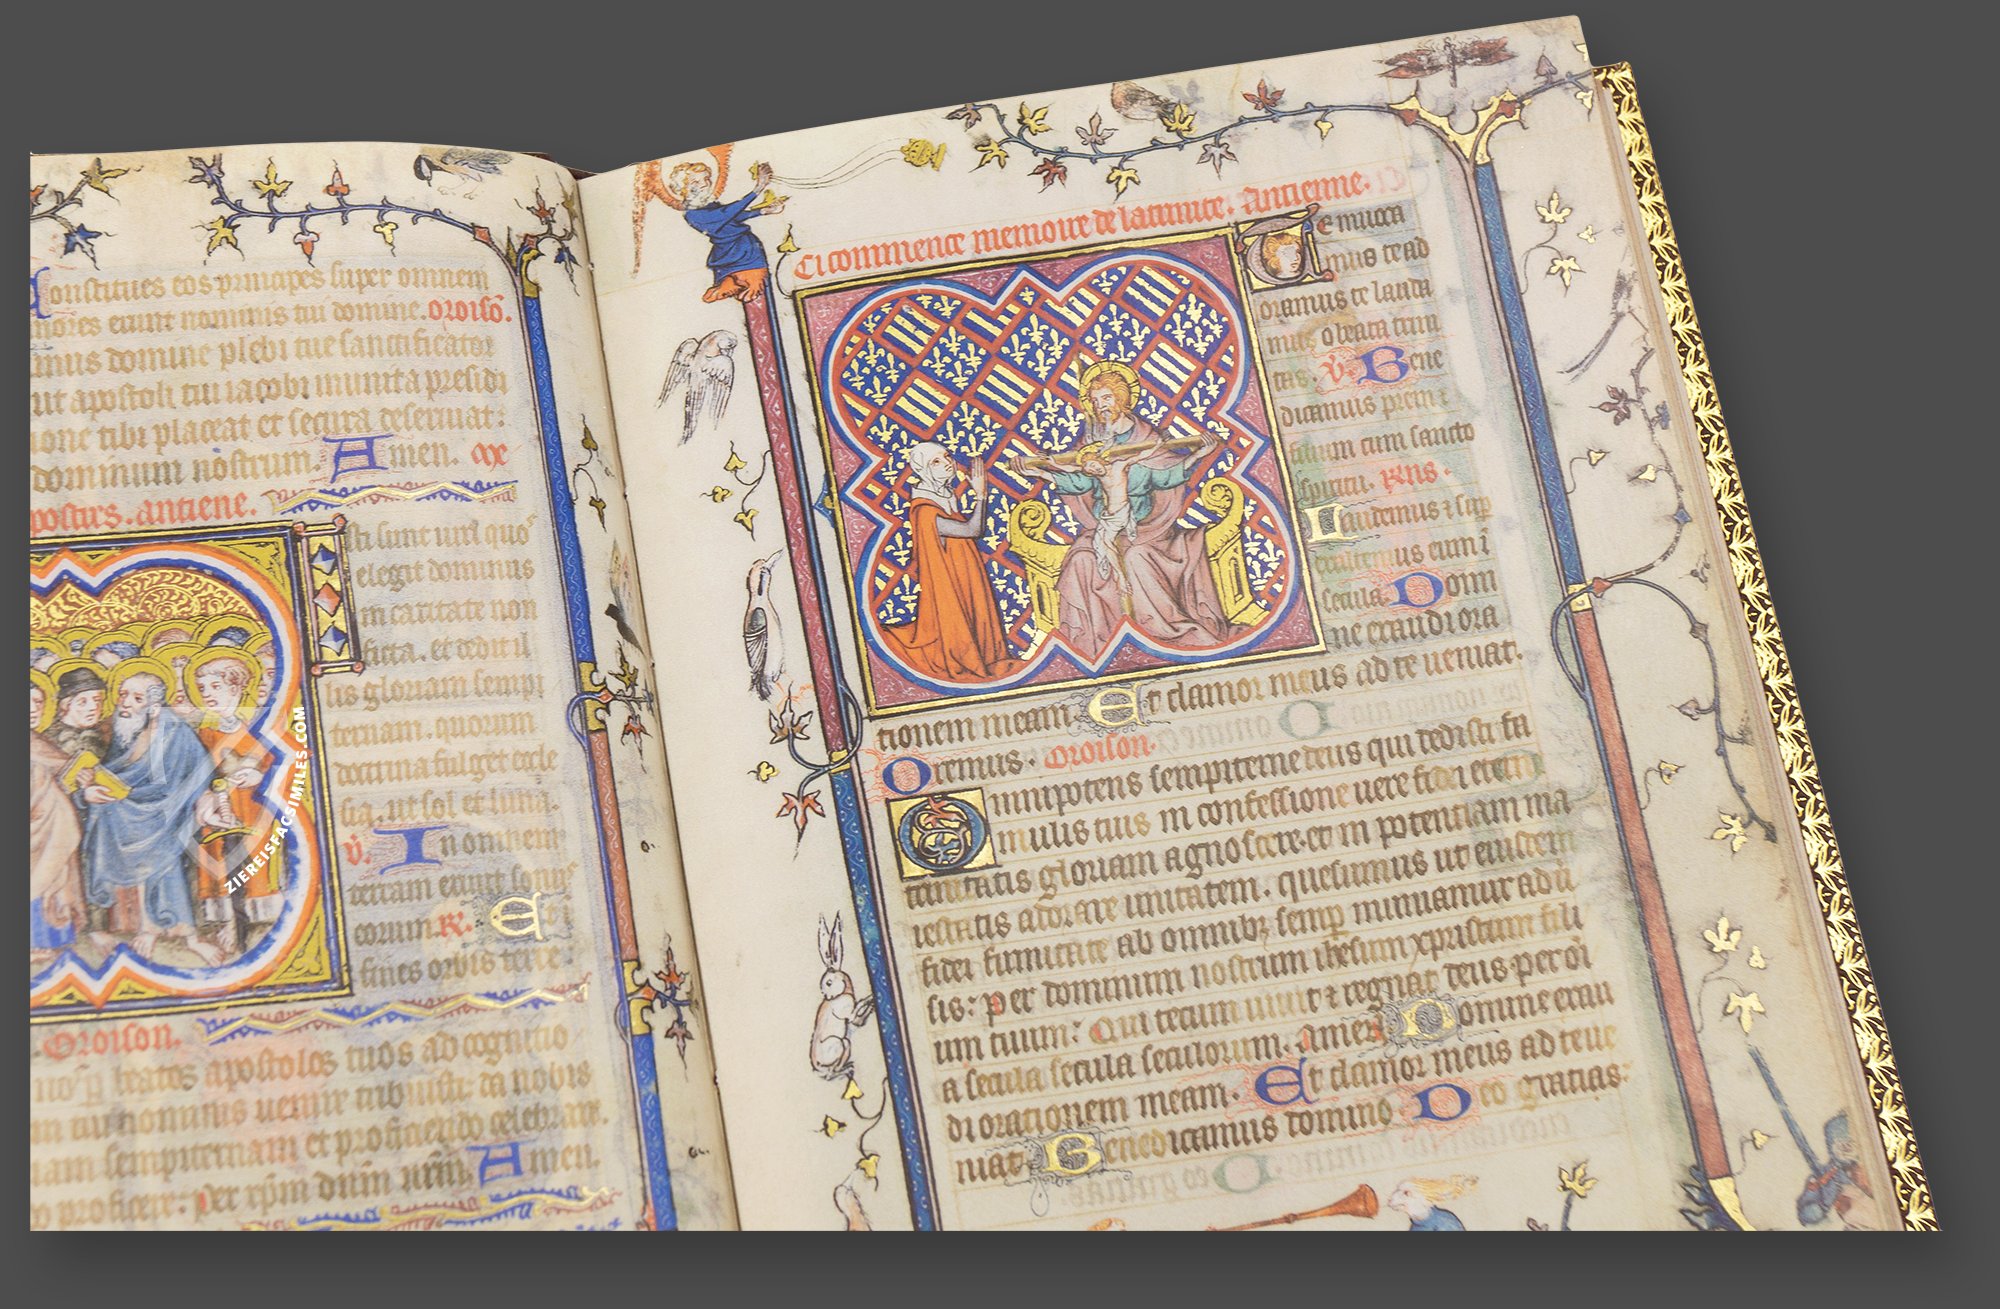 onstitues eos principes super omnem
mores erunt nominis tui domine. oroiso.
mus domine plebi tue sanctificator
ut apostoli tui iacobi munita presidi
ione tibi placeat et secura deseruat:
dominum nostrum. Amen.
postres. antiene.
sti sunt uiri quos
elegit dominus
in caritate non
ficta. et dedit il
lis gloriam sempi
ternam. quorum
doctrina fulget eccle
sia. ut sol et luna.
V. In omnem
terram exiuit sonus
eorum. R. Et i
fines orbis terre
. Oroison.
beatos apostolos tuos ad cognitio
nominis uenire tribuisti: da nobis
iam sempiternam et proficiendo celebrare.
proficere: per xpm dnm nrm. Amen.
Ci commence memoire de la trinite. Antienne.
Te inuoca
mus te ad
oramus te lauda
mus o beata trini
tas. V. Bene
dicamus patrem et
filium cum sancto
spiritu. Rens.
Laudemus et sup
exaltemus eum i
secula. Domi
ne exaudi ora
tionem meam. Et clamor meus ad te ueniat.
Oremus. Oroison.
Omnipotens sempiterne deus qui dedisti fa
mulis tuis in confessione uere fidei eterne
trinitatis gloriam agnoscere. et in potentiam ma
iestatis adorare unitatem. quesumus ut eiusdem
fidei firmitate ab omnibz semp muniamur aduer
sis: per dominum nostrum ihesum xpristum fili
um tuum: Qui tecum uiuit et regnat deus per oi
a secula seculorum. amen. Domine exau
di orationem meam. Et clamor meus ad te ue
niat. Benedicamus domino. Deo gratias:
ZIEREISFACSIMILES.COM